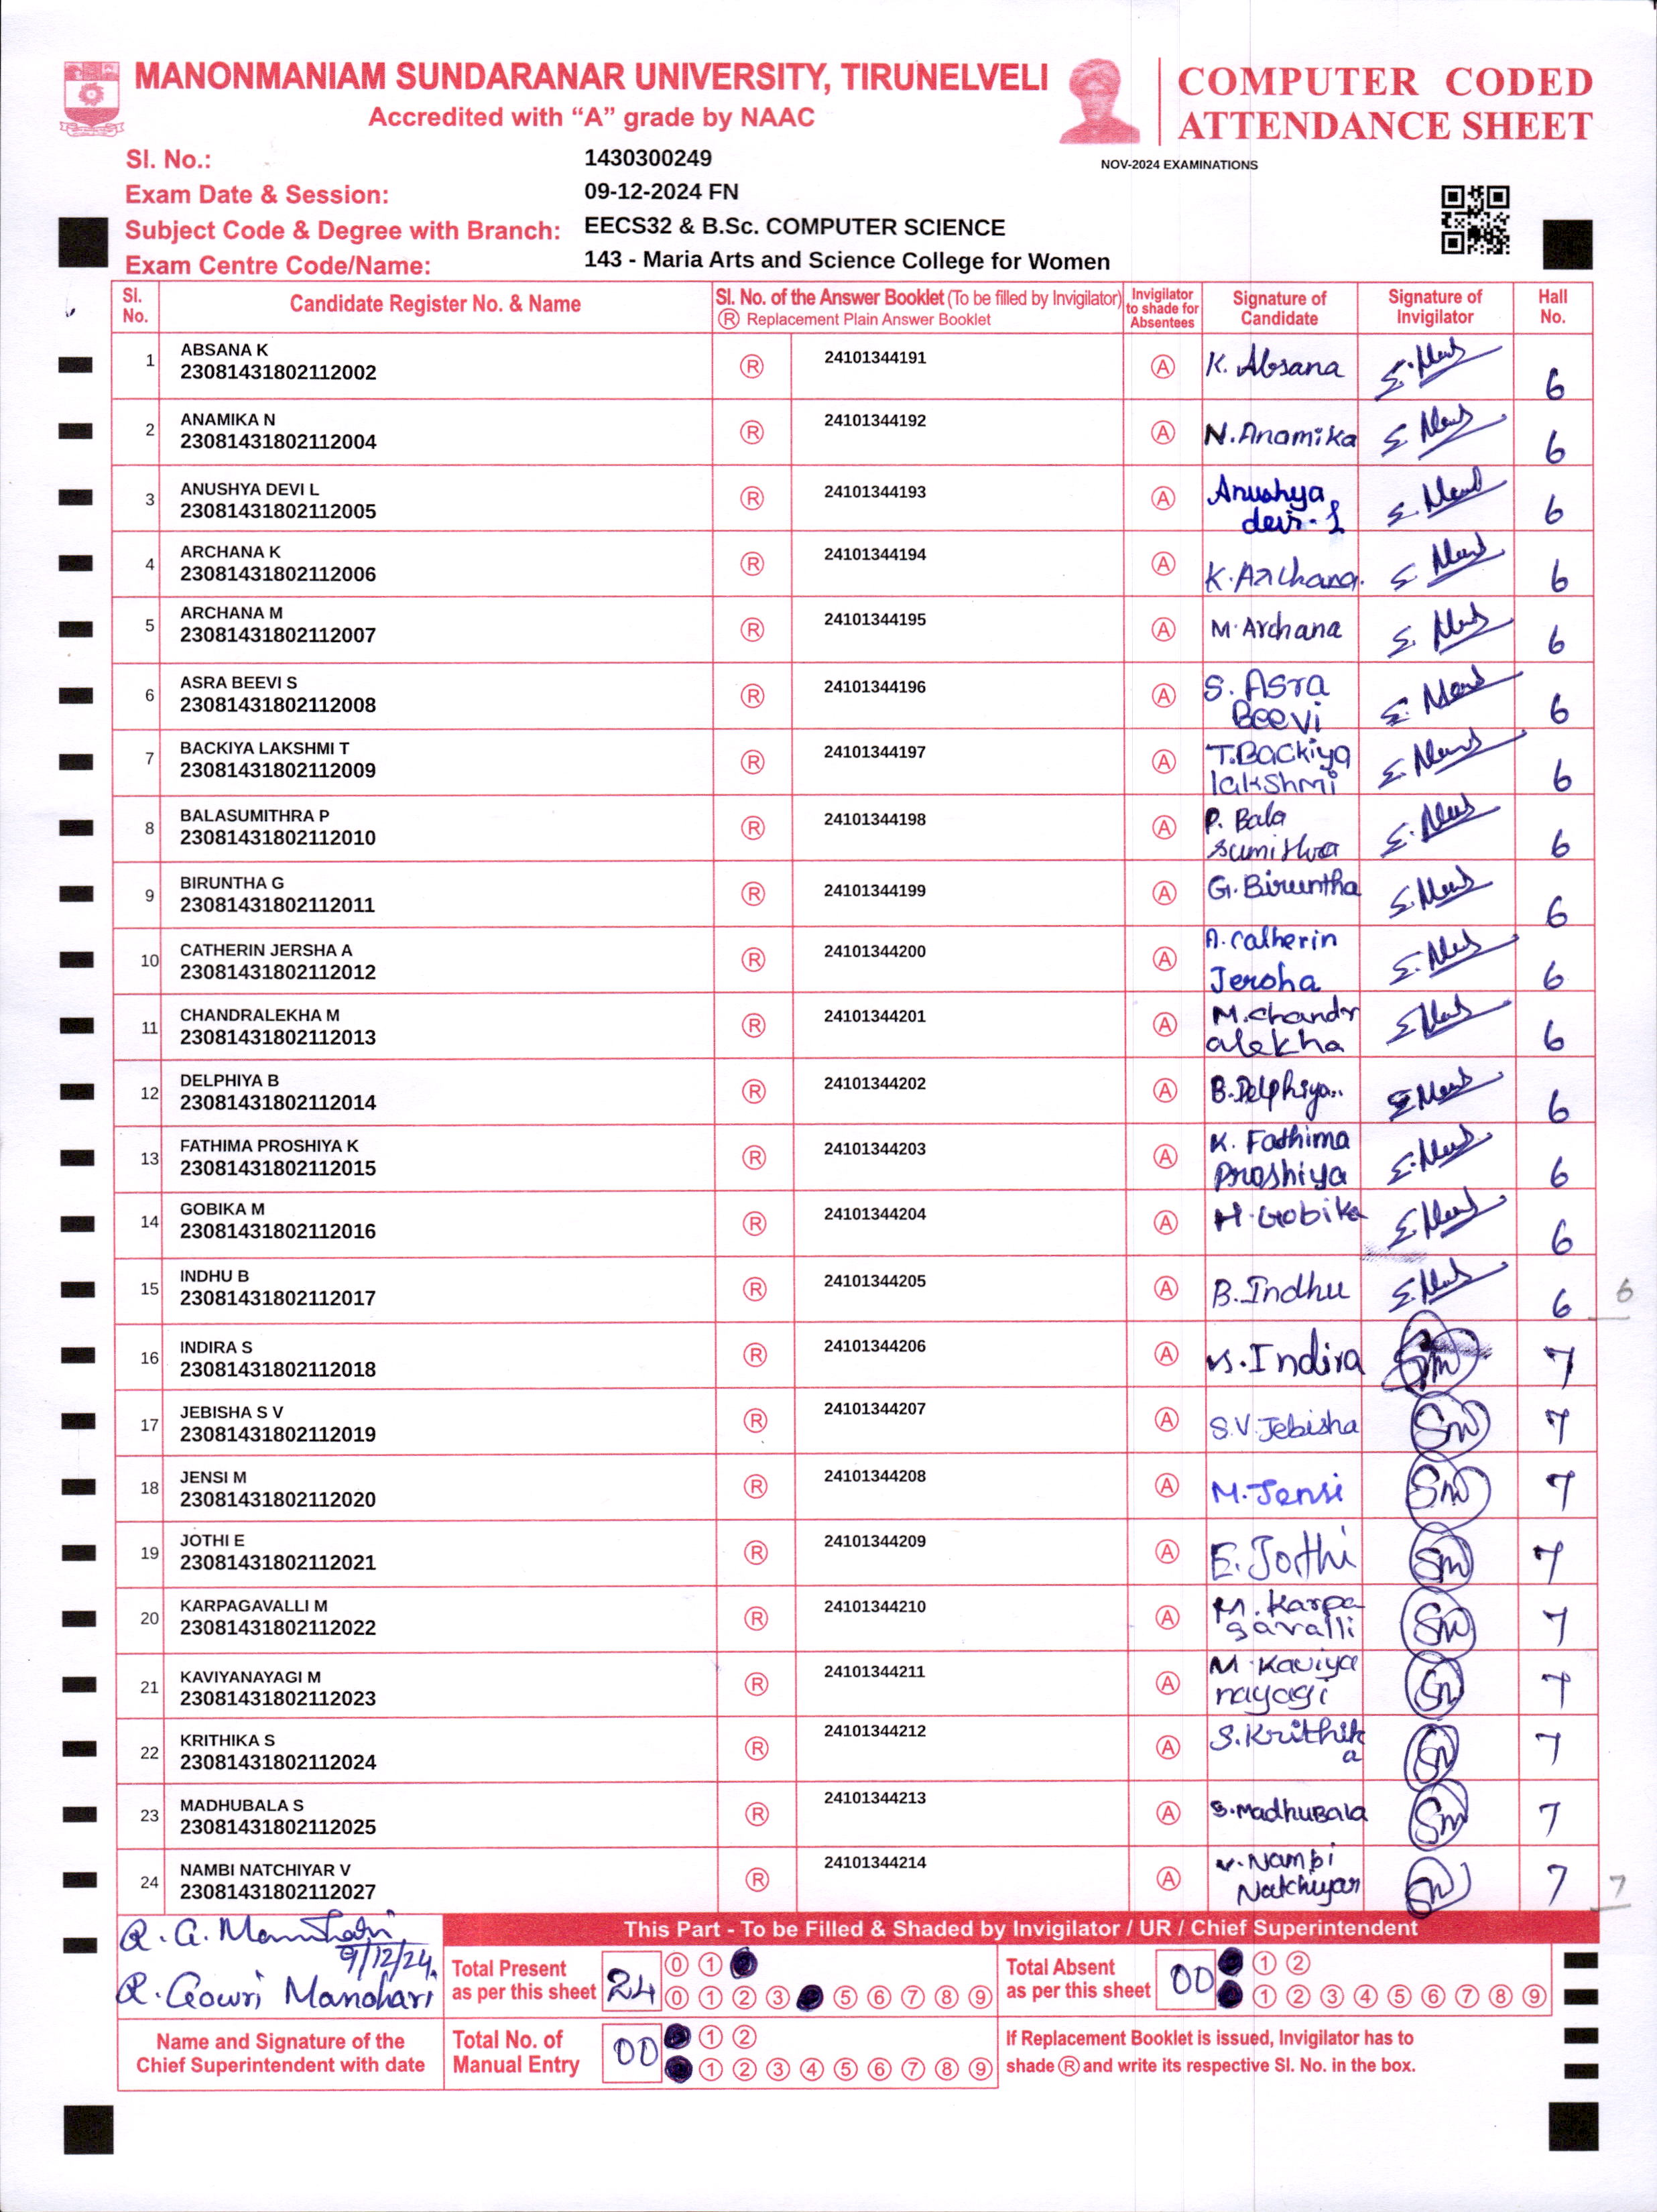 MANONMANIAM SUNDARANAR UNIVERSITY, TIRUNELVELI
Accredited with “A” grade by NAAC
COMPUTER CODED
ATTENDANCE SHEET
NOV-2024 EXAMINATIONS
Sl. No.: 1430300249
Exam Date & Session: 09-12-2024 FN
Subject Code & Degree with Branch: EECS32 & B.Sc. COMPUTER SCIENCE
Exam Centre Code/Name: 143 - Maria Arts and Science College for Women
Sl. No. Candidate Register No. & Name Sl. No. of the Answer Booklet (To be filled by Invigilator) Ⓡ Replacement Plain Answer Booklet Invigilator to shade for Absentees Signature of Candidate Signature of Invigilator Hall No.
1 ABSANA K 23081431802112002 Ⓡ 24101344191 Ⓐ K. Absana 6
2 ANAMIKA N 23081431802112004 Ⓡ 24101344192 Ⓐ N. Anamika 6
3 ANUSHYA DEVI L 23081431802112005 Ⓡ 24101344193 Ⓐ Anushya devi. L 6
4 ARCHANA K 23081431802112006 Ⓡ 24101344194 Ⓐ K. Archana. 6
5 ARCHANA M 23081431802112007 Ⓡ 24101344195 Ⓐ M. Archana 6
6 ASRA BEEVI S 23081431802112008 Ⓡ 24101344196 Ⓐ S. Asra Beevi 6
7 BACKIYA LAKSHMI T 23081431802112009 Ⓡ 24101344197 Ⓐ T. Backiya lakshmi 6
8 BALASUMITHRA P 23081431802112010 Ⓡ 24101344198 Ⓐ P. Bala sumithra 6
9 BIRUNTHA G 23081431802112011 Ⓡ 24101344199 Ⓐ G. Biruntha 6
10 CATHERIN JERSHA A 23081431802112012 Ⓡ 24101344200 Ⓐ A. Catherin Jersha 6
11 CHANDRALEKHA M 23081431802112013 Ⓡ 24101344201 Ⓐ M. Chandr alekha 6
12 DELPHIYA B 23081431802112014 Ⓡ 24101344202 Ⓐ B. Delphiya.. 6
13 FATHIMA PROSHIYA K 23081431802112015 Ⓡ 24101344203 Ⓐ K. Fathima Proshiya 6
14 GOBIKA M 23081431802112016 Ⓡ 24101344204 Ⓐ M. Gobika 6
15 INDHU B 23081431802112017 Ⓡ 24101344205 Ⓐ B. Indhu 6 6
16 INDIRA S 23081431802112018 Ⓡ 24101344206 Ⓐ S. Indira 7
17 JEBISHA S V 23081431802112019 Ⓡ 24101344207 Ⓐ S.V. Jebisha 7
18 JENSI M 23081431802112020 Ⓡ 24101344208 Ⓐ M. Jensi 7
19 JOTHI E 23081431802112021 Ⓡ 24101344209 Ⓐ E. Jothi 7
20 KARPAGAVALLI M 23081431802112022 Ⓡ 24101344210 Ⓐ M. Karpa gavalli 7
21 KAVIYANAYAGI M 23081431802112023 Ⓡ 24101344211 Ⓐ M. Kaviya nayagi 7
22 KRITHIKA S 23081431802112024 Ⓡ 24101344212 Ⓐ S. Krithik a 7
23 MADHUBALA S 23081431802112025 Ⓡ 24101344213 Ⓐ S. MadhuBala 7
24 NAMBI NATCHIYAR V 23081431802112027 Ⓡ 24101344214 Ⓐ V. Nambi Natchiyar 7 7
This Part - To be Filled & Shaded by Invigilator / UR / Chief Superintendent
9/12/24.
R. Gowri Manohari
Name and Signature of the Chief Superintendent with date
Total Present as per this sheet 24 0 1
0 1 2 3 5 6 7 8 9
Total Absent as per this sheet 00 1 2
1 2 3 4 5 6 7 8 9
Total No. of Manual Entry 00 1 2
1 2 3 4 5 6 7 8 9
If Replacement Booklet is issued, Invigilator has to
shade Ⓡ and write its respective Sl. No. in the box.